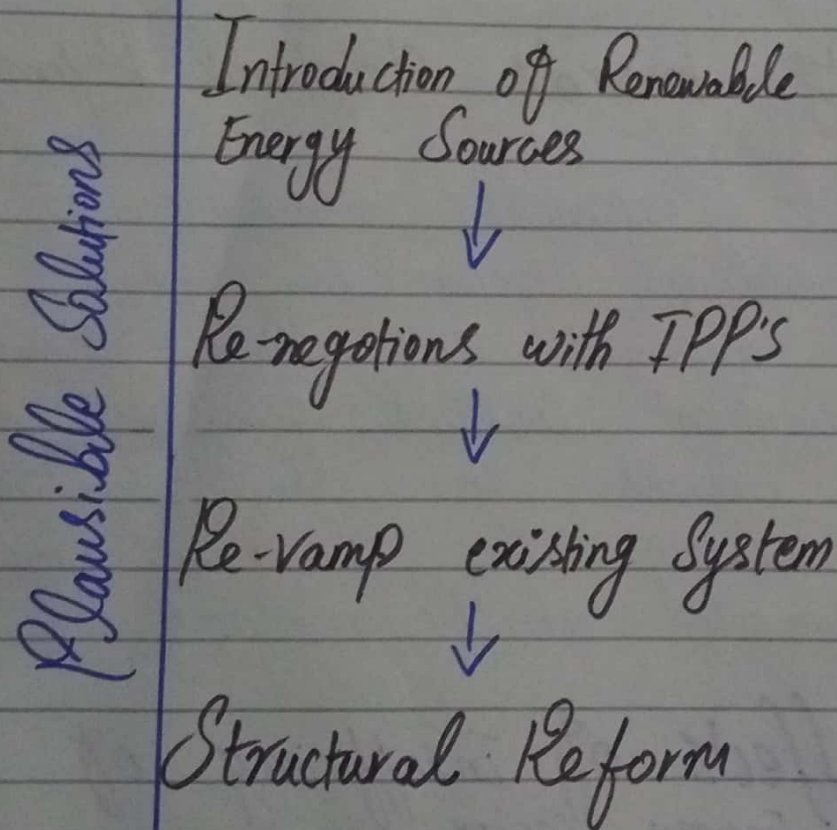 Plausible Solutions
Introduction of Renewable
Energy Sources
Re-negotions with IPP's
Re-vamp existing System
Structural Reform